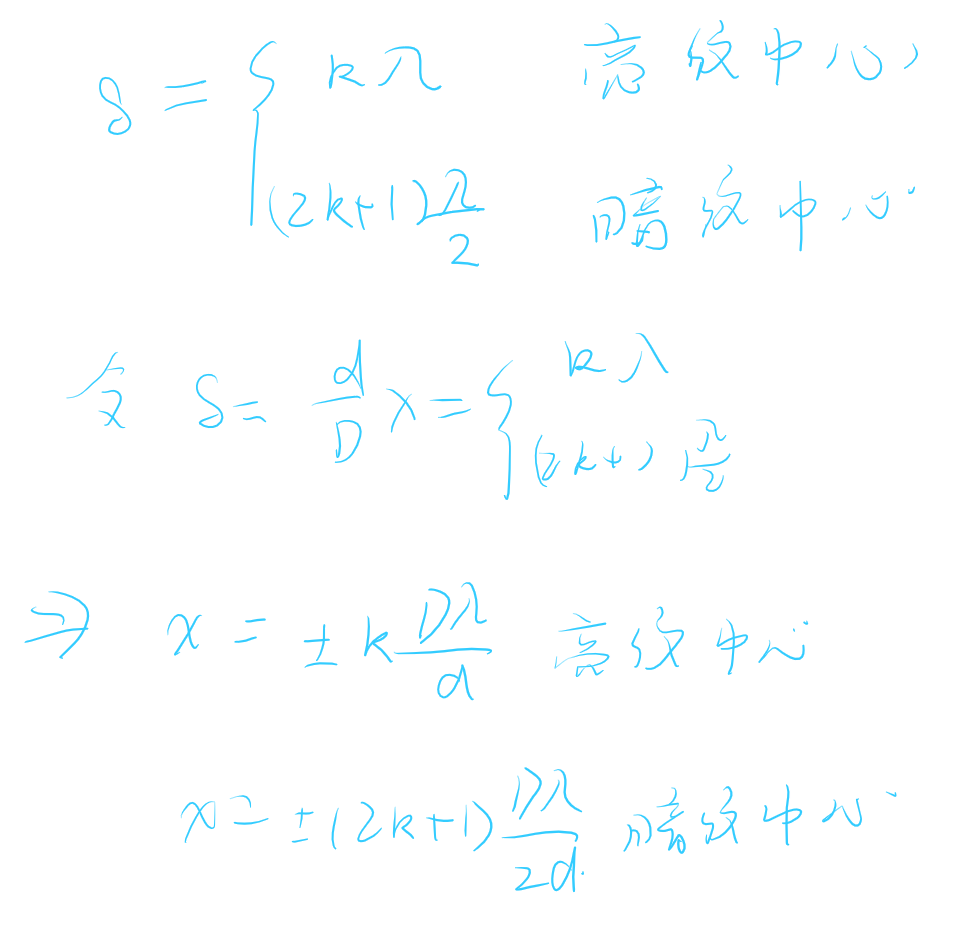 δ = { kλ 亮纹中心,
(2k+1)λ/2 暗纹中心.
令 δ = d/D x = { kλ
(2k+1)λ/2
⇒ x = ±k Dλ/d 亮纹中心
x = ±(2k+1) Dλ/2d. 暗纹中心.